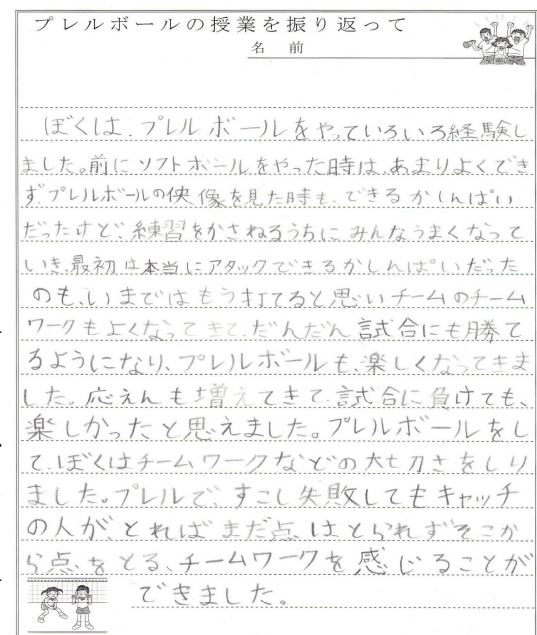 プレルボールの授業を振り返って
名前
ぼくは、プレルボールをやっていろいろ経験し
ました。前にソフトボールをやった時は、あまりよくでき
ず、プレルボールの映像を見た時も、できるかしんぱい
だったけど、練習をかさねるうちに、みんなうまくなって
いき、最初は本当にアタックできるかしんぱいだった
のも、いまではもう打てると思いチームのチーム
ワークもよくなってきて、だんだん試合にも勝て
るようになり、プレルボールも、楽しくなってきま
した。応えんも増えてきて、試合に負けても、
楽しかったと思えました。プレルボールをし
て、ぼくはチームワークなどの大切さをしり
ました。プレルで、すこし失敗してもキャッチ
の人が、とればまだ点はとられずそこか
ら点をとる、チームワークを感じることが
できました。